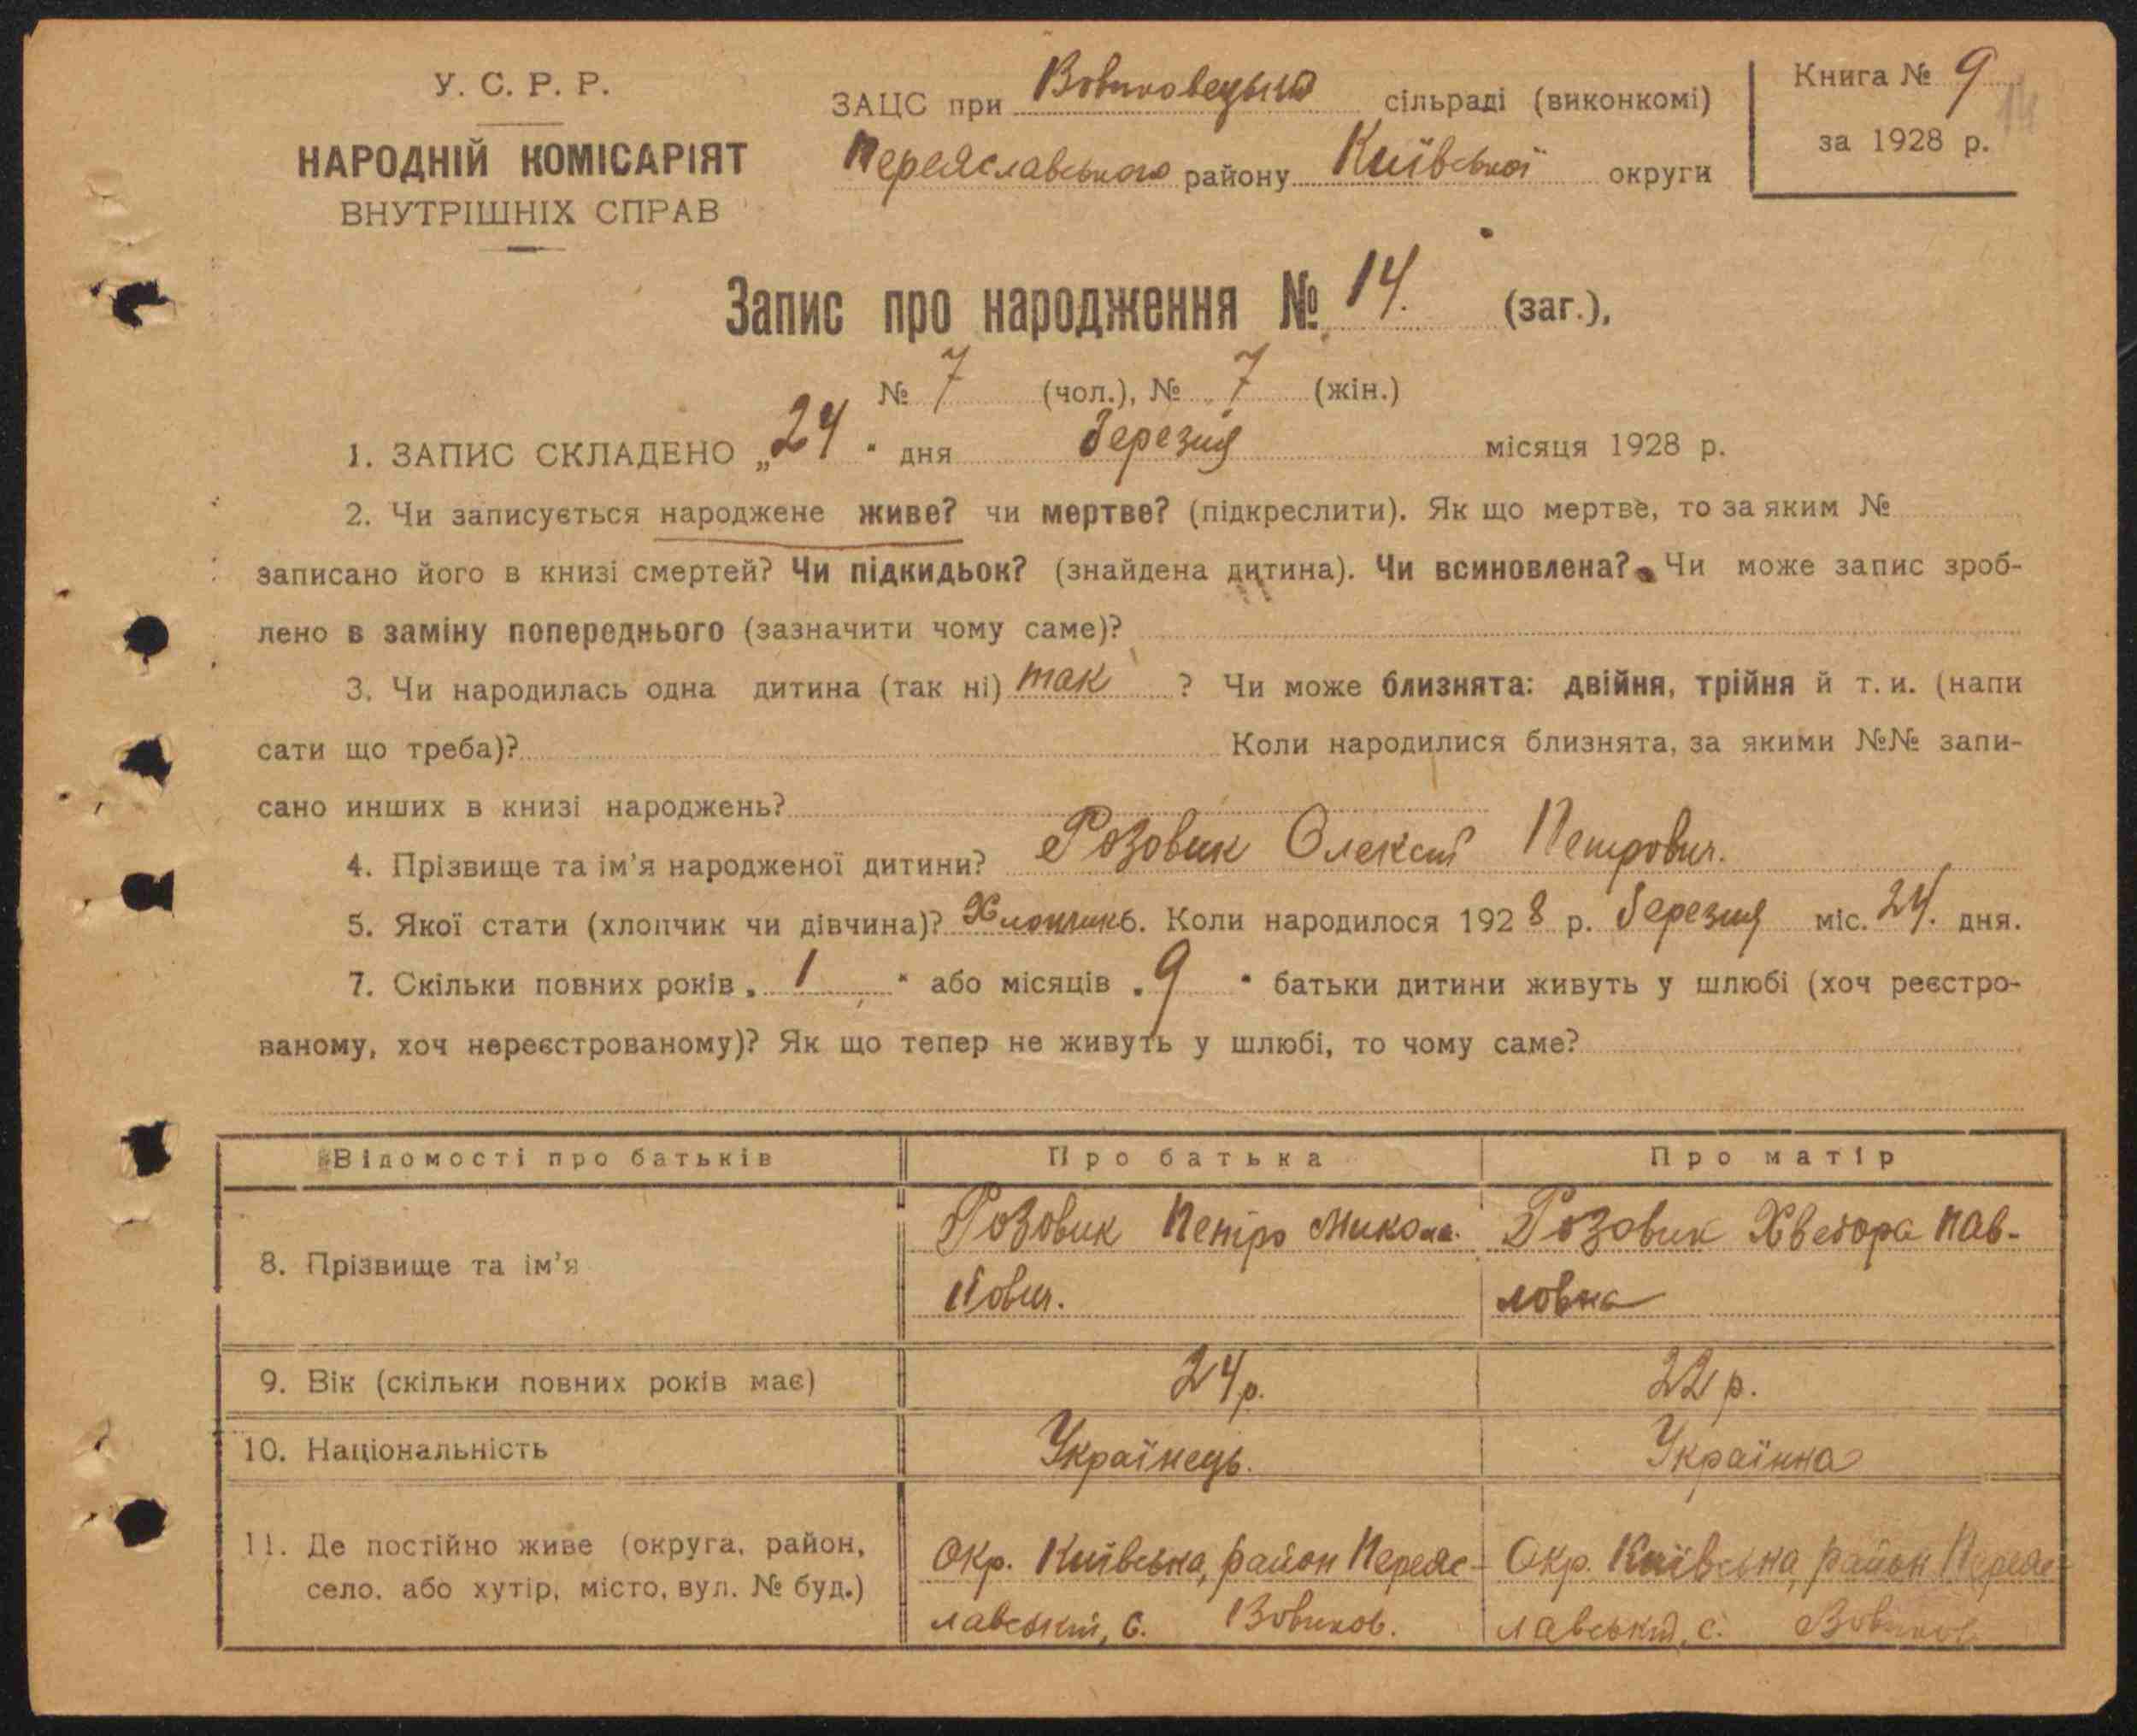 У. С. Р. Р.
НАРОДНІЙ КОМІСАРІЯТ
ВНУТРІШНІХ СПРАВ
ЗАЦС при сільраді (виконкомі)
Переяславського району Київської округи
Книга № 9
за 1928 р.
14
Запис про народження № 14. (заг.),
№ 7 (чол.), № 7 (жін.)
1. ЗАПИС СКЛАДЕНО „24" дня березня місяця 1928 р.
2. Чи записується народжене живе? чи мертве? (підкреслити). Як що мертве, то за яким №
записано його в книзі смертей? Чи підкидьок? (знайдена дитина). Чи всиновлена? Чи може запис зроб-
лено в заміну попереднього (зазначити чому саме)?
3. Чи народилась одна дитина (так ні) так ? Чи може близнята: двійня, трійня й т. и. (напи
сати що треба)? Коли народилися близнята, за якими №№ запи-
сано инших в книзі народжень?
4. Прізвище та ім'я народженої дитини? Розовик Олексій Петрович.
5. Якої стати (хлопчик чи дівчина)? Хлопчик 6. Коли народилося 1928 р. березня міс. 24. дня.
7. Скільки повних років „ 1 " або місяців „ 9 " батьки дитини живуть у шлюбі (хоч реєстро-
ваному, хоч нереєстрованому)? Як що тепер не живуть у шлюбі, то чому саме?
Відомості про батьків Про батька Про матір
8. Прізвище та ім'я
Розовик Петро Микола
йович.
Розовик Хведора Пав-
ловна
9. Вік (скільки повних років має) 24 р. 22 р.
10. Національність Українець. Українка
11. Де постійно живе (округа, район,
село, або хутір, місто, вул. № буд.)
Окр. Київська, район Переяс-
лавський, с. Вовчков.
Окр. Київська, район Переяс-
лавський, с. Вовчков